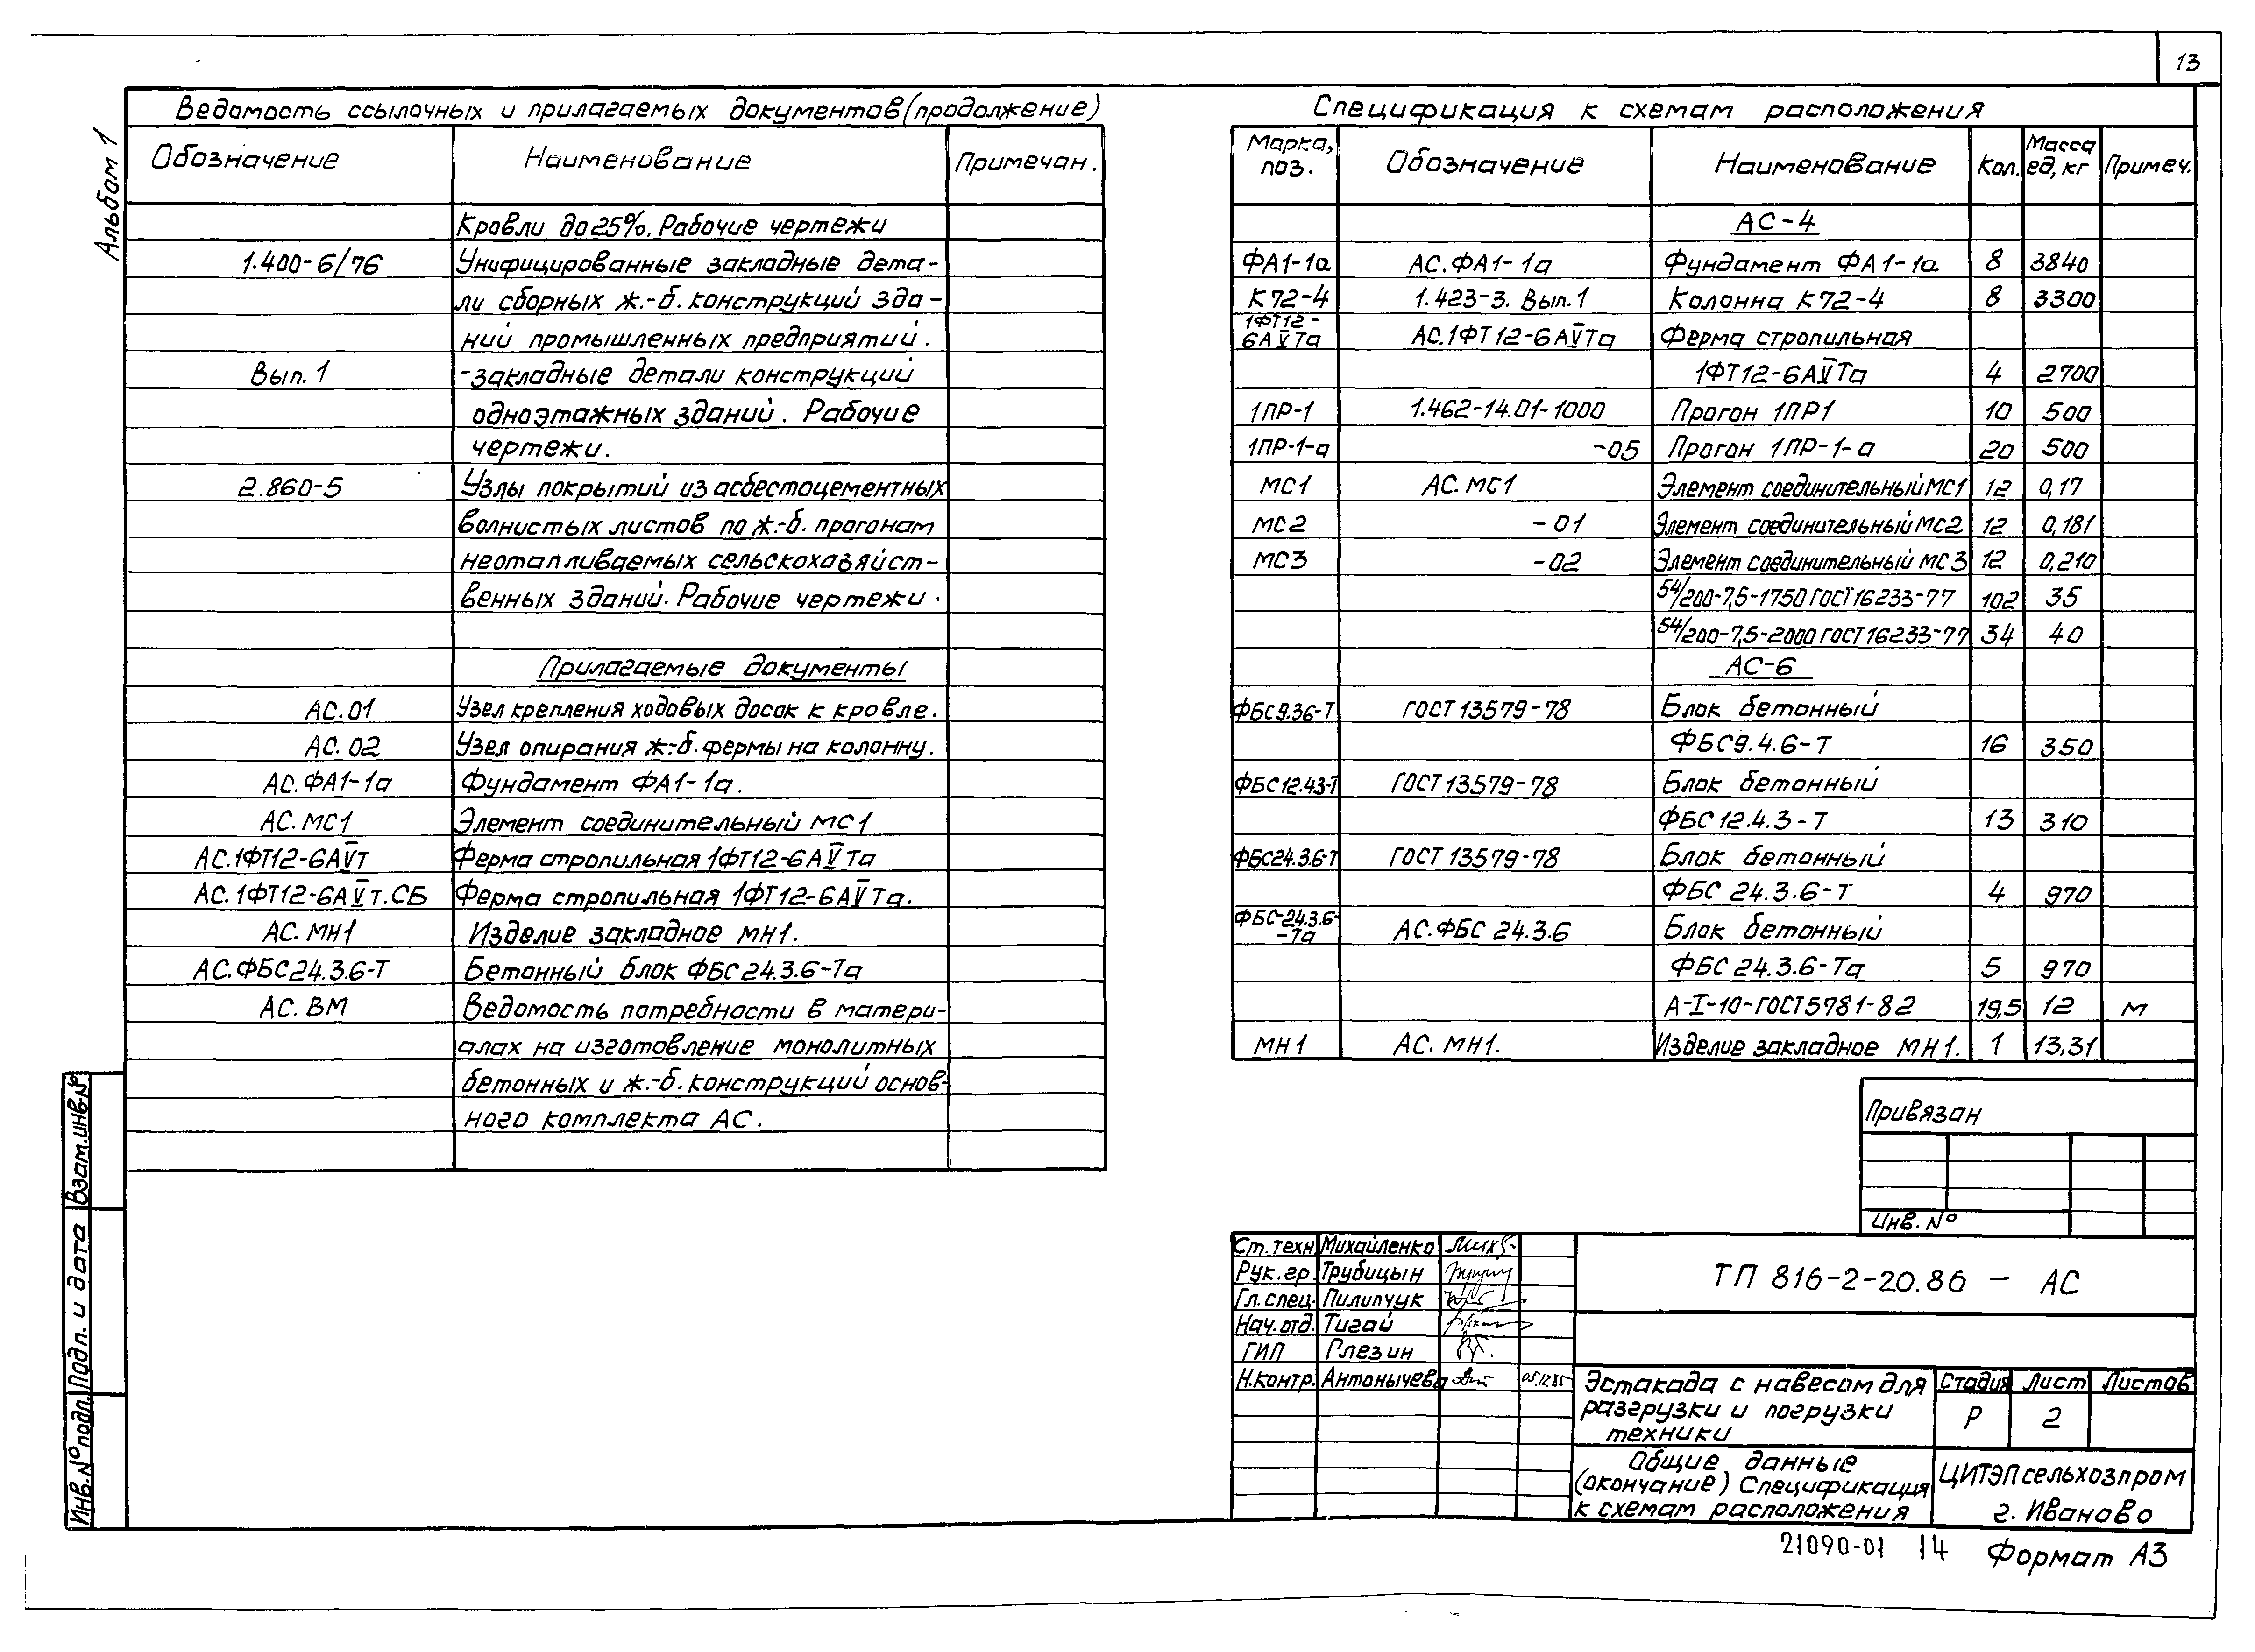 13
Альбом 1
Ведомость ссылочных и прилагаемых документов (продолжение)
Обозначение Наименование Примечан.
Кровли до 25%. Рабочие чертежи
1.400-6/76 Унифицированные закладные дета-
ли сборных ж.-б. конструкций зда-
ний промышленных предприятий.
Вып. 1 -закладные детали конструкций
одноэтажных зданий. Рабочие
чертежи.
2.860-5 Узлы покрытий из асбестоцементных
волнистых листов по ж.-б. прогонам
неотапливаемых сельскохозяйст-
венных зданий. Рабочие чертежи.
Прилагаемые документы
АС.01 Узел крепления ходовых досок к кровле.
АС.02 Узел опирания ж.-б. фермы на колонну.
АС.ФА1-1а Фундамент ФА1-1а.
АС.МС1 Элемент соединительный МС1
АС.1ФТ12-6АVт Ферма стропильная 1ФТ12-6АVТа
АС.1ФТ12-6АVт.СБ Ферма стропильная 1ФТ12-6АVТа.
АС.МН1 Изделие закладное МН1.
АС.ФБС24.3.6-Т Бетонный блок ФБС24.3.6-Та
АС.ВМ Ведомость потребности в матери-
алах на изготовление монолитных
бетонных и ж.-б. конструкций основ-
ного комплекта АС.
Спецификация к схемам расположения
Марка, поз. Обозначение Наименование Кол. Масса ед, кг Примеч.
АС-4
ФА1-1а АС.ФА1-1а Фундамент ФА1-1а 8 3840
К72-4 1.423-3. Вып.1 Колонна К72-4 8 3300
1ФТ12-
6АVТа АС.1ФТ12-6АVТа Ферма стропильная
1ФТ12-6АVТа 4 2700
1ПР-1 1.462-14.01-1000 Прогон 1ПР1 10 500
1ПР-1-а -05 Прогон 1ПР-1-а 20 500
МС1 АС.МС1 Элемент соединительный МС1 12 0,17
МС2 -01 Элемент соединительный МС2 12 0,181
МС3 -02 Элемент соединительный МС3 12 0,210
54/200-7,5-1750 ГОСТ 16233-77 102 35
54/200-7,5-2000 ГОСТ 16233-77 34 40
АС-6
ФБС9.36-Т ГОСТ 13579-78 Блок бетонный
ФБС9.4.6-Т 16 350
ФБС12.43-Т ГОСТ 13579-78 Блок бетонный
ФБС12.4.3-Т 13 310
ФБС24.3.6-Т ГОСТ 13579-78 Блок бетонный
ФБС 24.3.6-Т 4 970
ФБС-24.3.6-
-Та АС.ФБС 24.3.6 Блок бетонный
ФБС 24.3.6-Та 5 970
А-I-10-ГОСТ5781-82 19,5 12 м
МН1 АС.МН1. Изделие закладное МН1. 1 13,31
Привязан
Инв. №
Ст. техн. Михайленко
Рук. гр. Трубицын
Гл. спец. Пилипчук
Нач. отд. Тигай
ГИП Глезин
Н.контр. Антонычева 05.12.85
ТП 816-2-20.86 - АС
Эстакада с навесом для
разгрузки и погрузки
техники
Стадия Лист Листов
Р 2
Общие данные
(окончание) Спецификация
к схемам расположения
ЦИТЭПсельхозпром
г. Иваново
Взам.инв.№
Подп. и дата
Инв. № подл.
21090-01 14 Формат А3